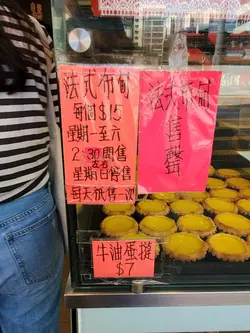 法式布甸
每個$15
星期一至六
2:30開售
左右
星期日停售
每天祇售一次
法式布甸
售罄
牛油蛋撻
$7